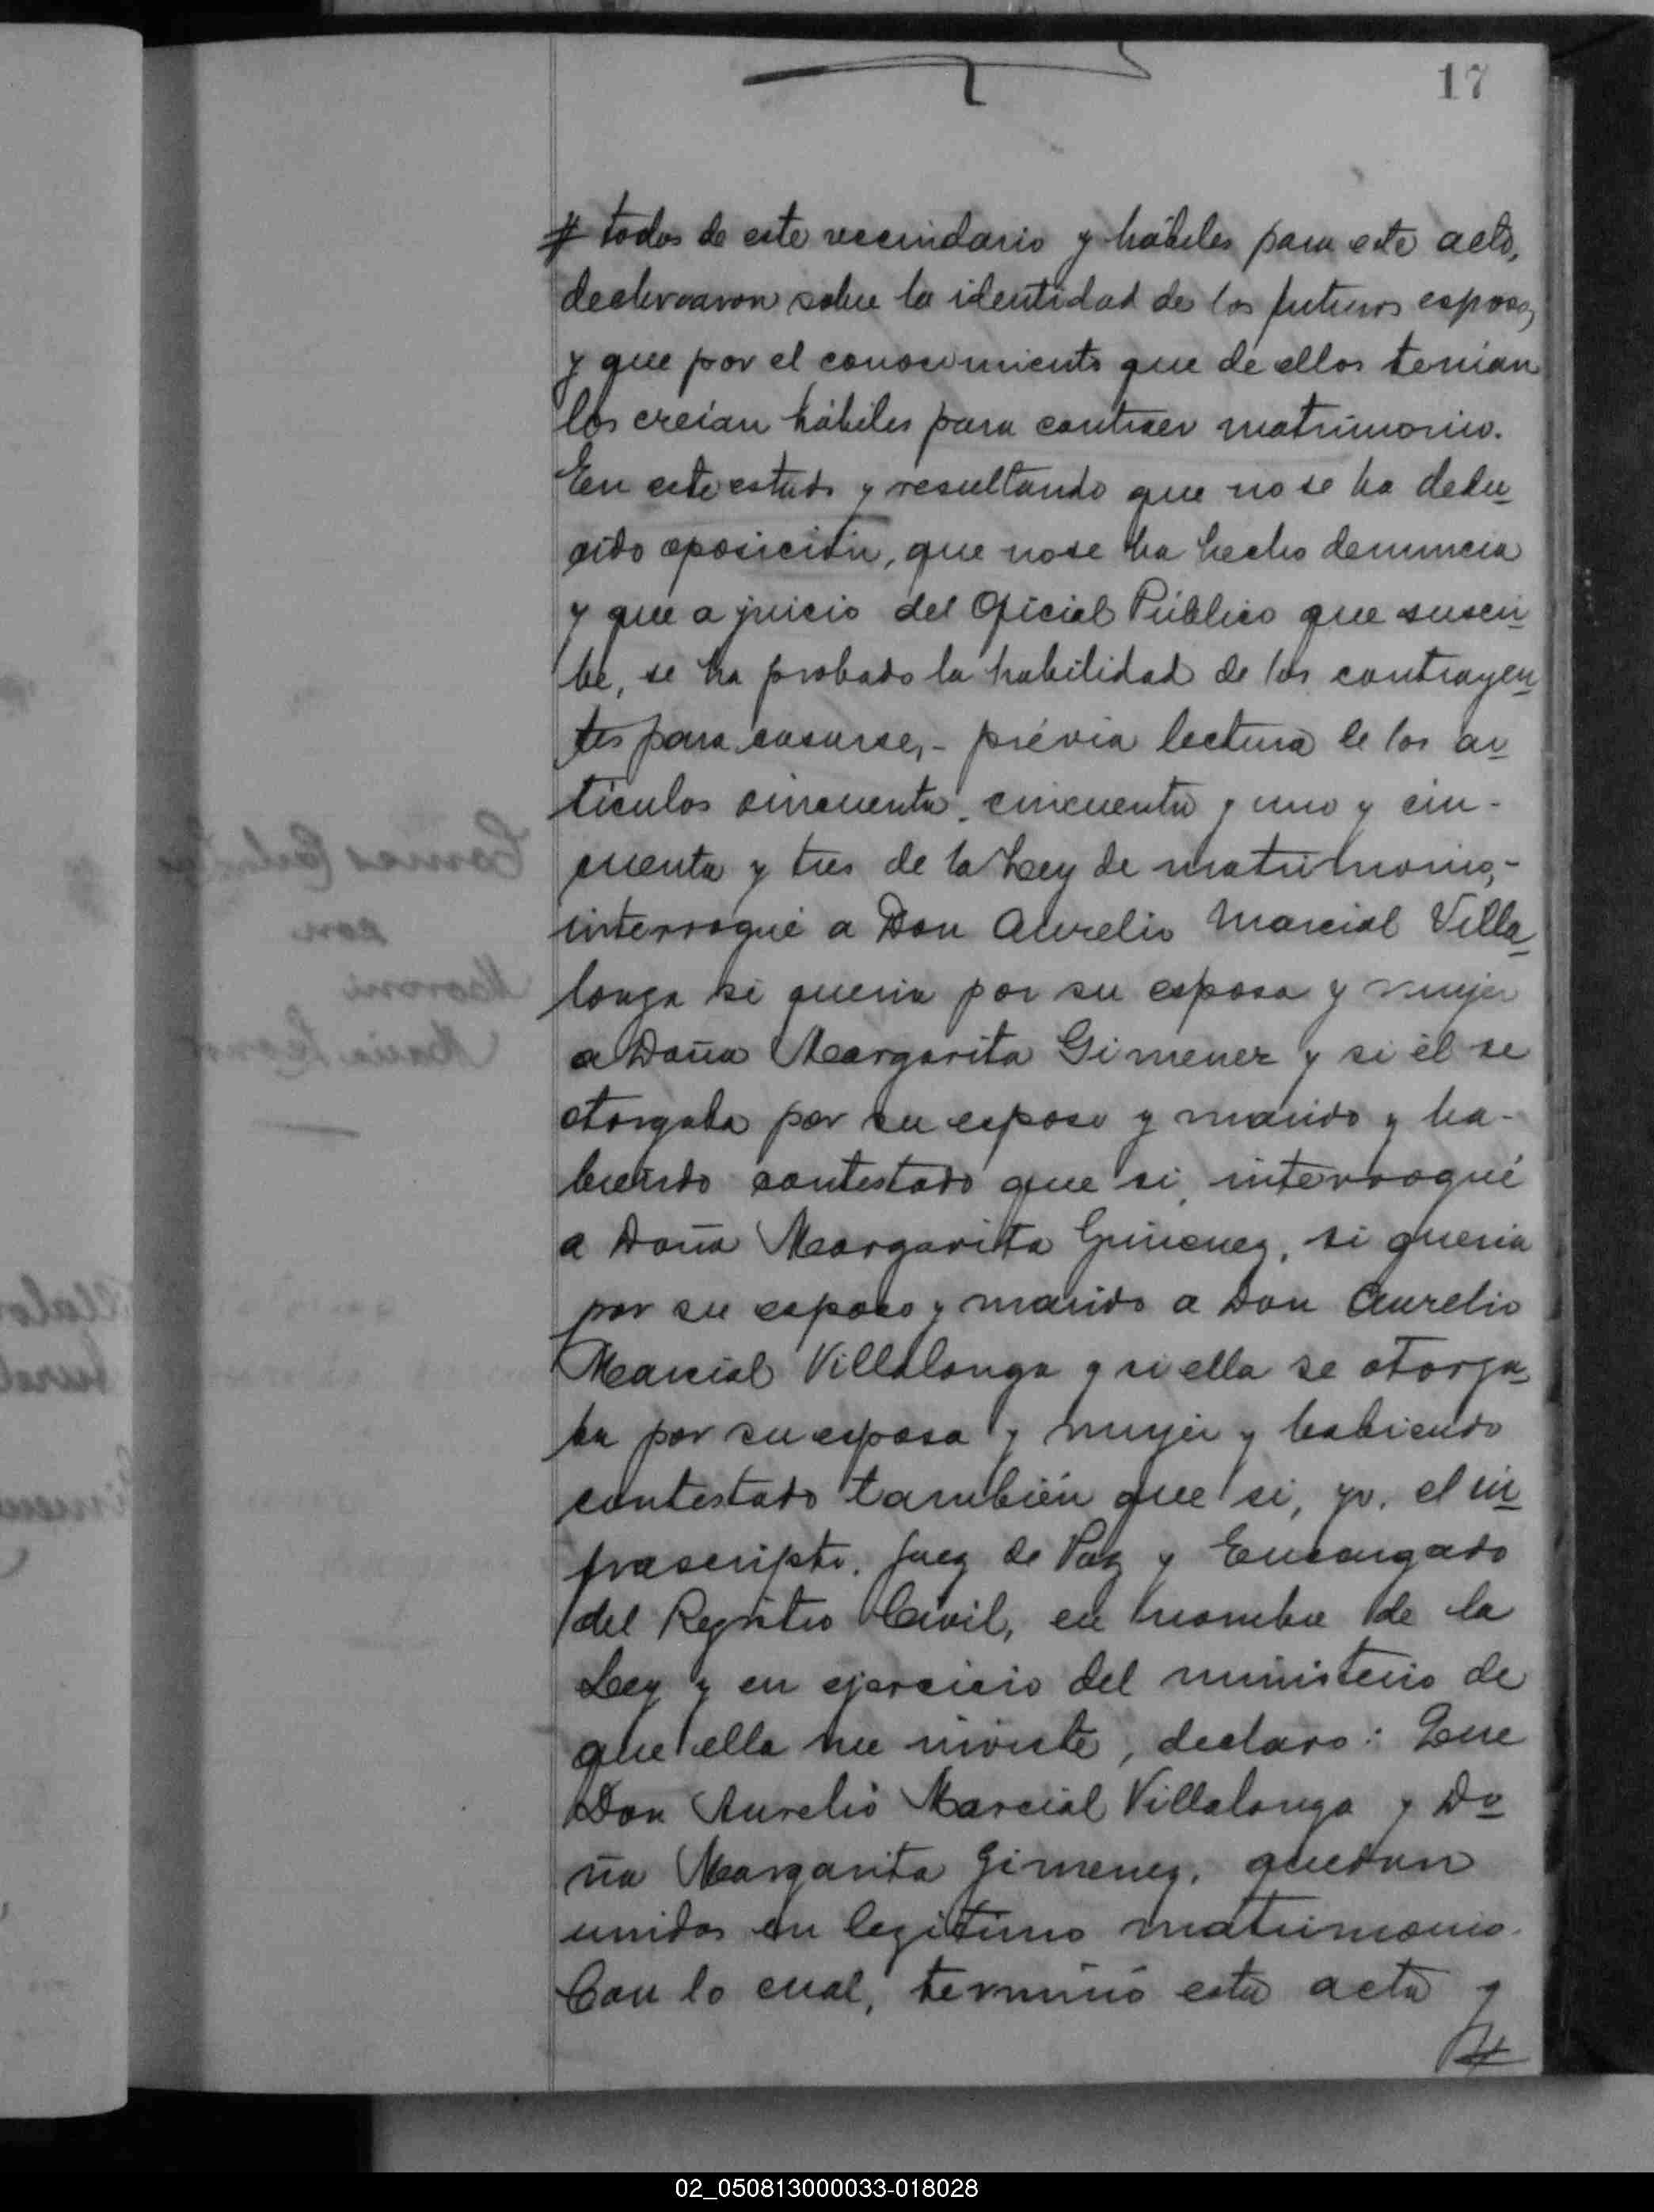 17
# todos de este vecindario y hábiles para este acto,
declararon sobre la identidad de los futuros esposos,
y que por el conocimiento que de ellos tenían
los creían hábiles para contraer matrimonio.
En este estado y resultando que no se ha dedu-
cido oposición, que no se ha hecho denuncia
y que a juicio del Oficial Público que suscri-
be, se ha probado la habilidad de los contrayen-
tes para casarse,- prévia lectura de los ar-
tículos cincuenta, cincuenta y uno y cin-
cuenta y tres de la Ley de matrimonio,-
interrogué a Don Aurelio Marcial Villa-
longa si queria por su esposa y mujer
a Doña Margarita Gimenez y si él se
otorgaba por su esposo y marido y ha-
biendo contestado que si, interrogué
a Doña Margarita Gimenez, si queria
por su esposo y marido a Don Aurelio
Marcial Villalonga y si ella se otorga-
ba por su esposa y mujer y habiendo
contestado también que si, yo, el in-
frascripto, Juez de Paz y Encargado
del Registro Civil, en nombre de la
Ley y en ejercicio del ministerio de
que ella me inviste, declaro: Que
Don Aurelio Marcial Villalonga y Do-
ña Margarita Gimenez, quedan
unidos en legitimo matrimonio.
Con lo cual, terminó esta acta y
#
02_050813000033-018028